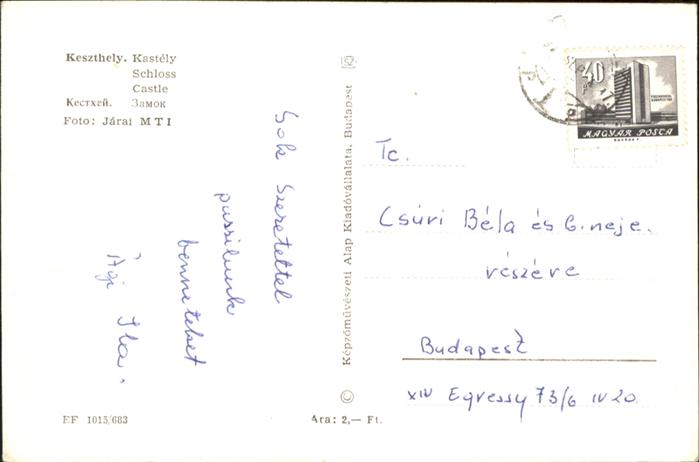 Keszthely. Kastély
Schloss
Castle
Кестхей. Замок
Foto: Járai MTI
Sok szeretettel
puszilunk
benneteket
Ági Ita.
EF 1015/683
Képzőművészeti Alap Kiadóvállalata, Budapest
Ára: 2,— Ft.
40
MAGYAR POSTA
Tc.
Csúri Béla és b. neje.
részére
Budapest
XIV Egressy 73/b IV 20